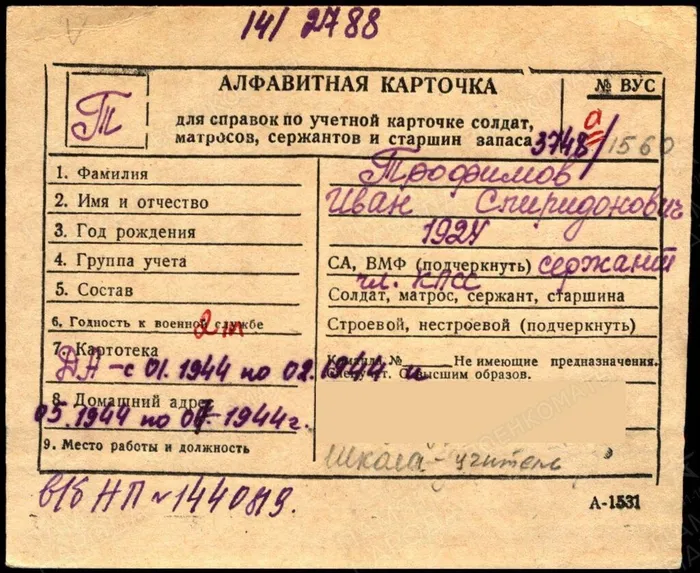 14/2788
АЛФАВИТНАЯ КАРТОЧКА
№ ВУС
Т
для справок по учетной карточке солдат,
матросов, сержантов и старшин запаса
3748/1560
а
1. Фамилия
Трофимов
2. Имя и отчество
Иван Спиридонович
3. Год рождения
1924
4. Группа учета
СА, ВМФ (подчеркнуть) сержант
чл. КПСС
5. Состав
Солдат, матрос, сержант, старшина
6. Годность к военной службе
Строевой, нестроевой (подчеркнуть)
7. Картотека
Команда № Не имеющие предназначения.
ДА - с 01.1944 по 02.1944 и
8. Домашний адрес
05.1944 по 07.1944 г.
9. Место работы и должность
Школа - учитель
в/б НП №144089.
А-1531